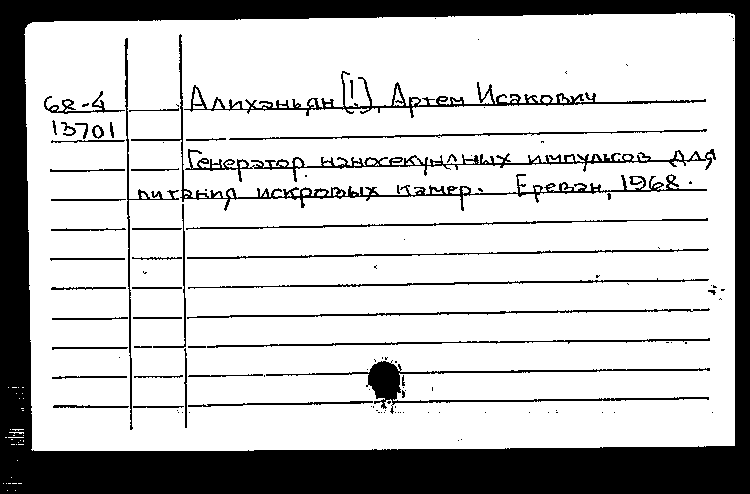 68-4 Алиханьян [!], Артем Исакович
13701
Генератор наносекундных импульсов для
питания искровых камер. Ереван, 1968.